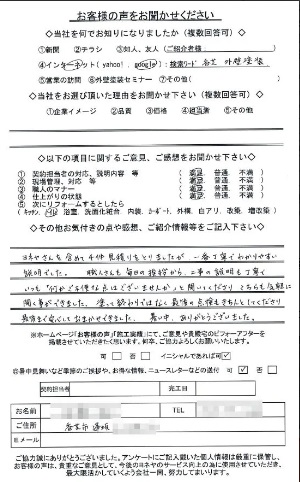 お客様の声をお聞かせください
◇当社を何でお知りになりましたか（複数回答可）◇
①新聞 ②チラシ ③知人、友人（ご紹介者様： ）
④インターネット（yahoo!、google）：検索ワード 名芝 外壁塗装
⑤営業の訪問 ⑥外壁塗装セミナー ⑦その他（ ）
◇当社をお選び頂いた理由をお聞かせ下さい（複数回答可）◇
①企業イメージ ②品質 ③価格 ④担当者 ⑤その他
◇以下の項目に関するご意見、ご感想をお聞かせ下さい◇
① 契約担当者の対応、説明内容 等 （ 満足 普通 不満 ）
② 現場管理、対応 等 （ 満足 普通 不満 ）
③ 職人のマナー （ 満足 普通 不満 ）
④ 仕上がりの状態 （ 満足 普通 不満 ）
⑤ 次にリフォームするとしたら
（キッチン、トイレ、浴室、洗面化粧台、内装、カーポート、外構、白アリ、改築、増改築）
◇その他お気付きの点や感想、ご紹介情報等をご記入下さい◇
ヨネヤさんを含めて4件見積りをとりましたが 一番丁寧でわかりやすい
説明でした。 職人さんも毎日の挨拶から、工事の説明も丁寧で
いつも"何かご不便な点はございませんか"と聞いてくださり こちらも気軽に
聞く事ができました。 塗って終わりではなく 最後の点検もきちんとしてくださり
最後まで安心しておまかせできました。 暑い中、ありがとうございました。
※ホームページ「お客様の声」「施工実績」にて、ご意見や貴殿宅のビフォーアフターを
掲載させていただきたく思います。何卒、ご協力よろしくお願いします。
可 否 イニシャルであれば可
暑中見舞いなど季節のご挨拶や、お得な情報、ニュースレターなどの送付 可 否
契約担当者 完工日
お名前 TEL
ご住所
E.メール
ご協力誠にありがとうございました。アンケートにご記入戴いた個人情報は厳重に保管し、
お客様の声は、貴重なご意見として、今後のヨネヤのサービス向上の為に使用させていただき、
最大限活かしていくよう会社一同、努力してまいります。